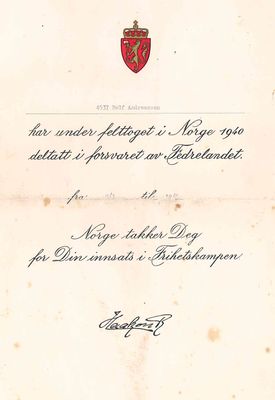 Rolf Andreassen
har under felttoget i Norge 1940
deltatt i forsvaret av Fedrelandet.
fra til
Norge takker Deg
for Din innsats i Frihetskampen
Haakon R